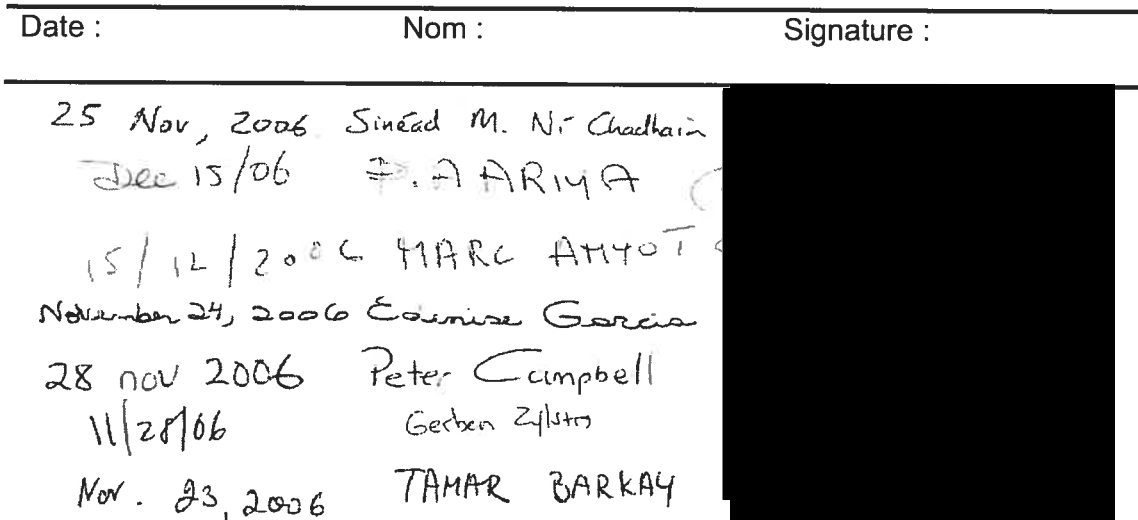 Date : Nom : Signature :
25 Nov, 2006 Sinéad M. Ní Chadhain
Dec 15/06 P. A ARIYA
15/12/2006 MARC AMYOT
November 24, 2006 Edenise Garcia
28 nov 2006 Peter Campbell
11/28/06 Gerben Zylstra
Nov. 23, 2006 TAMAR BARKAY